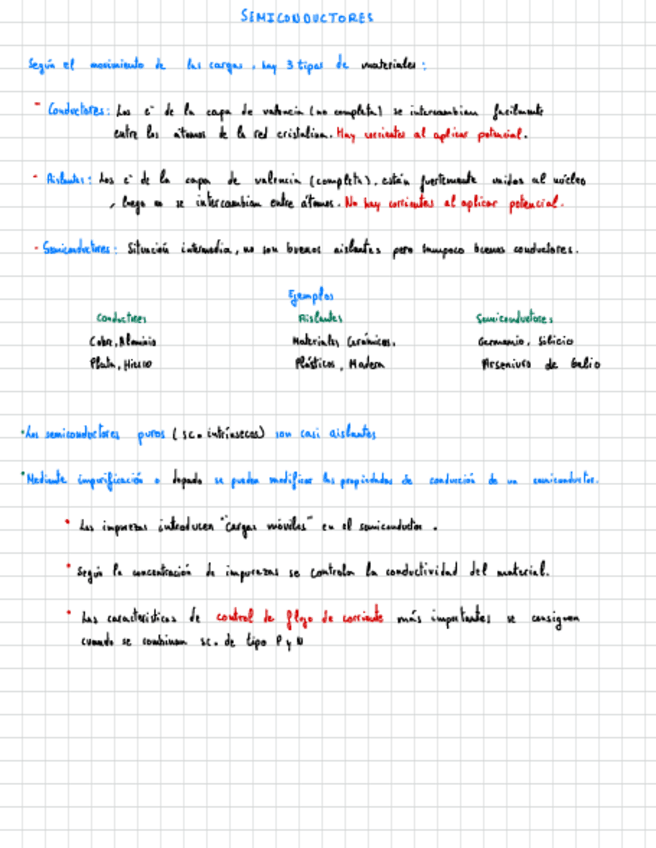 SEMICONDUCTORES
Según el movimiento de las cargas, hay 3 tipos de materiales:
- Conductores: Los e⁻ de la capa de valencia (no completa) se intercambian facilmente
entre los átomos de la red cristalina. Hay corrientes al aplicar potencial.
- Aislantes: Los e⁻ de la capa de valencia (completa), están fuertemente unidos al núcleo
, luego no se intercambian entre átomos. No hay corrientes al aplicar potencial.
- Semiconductores: Situación intermedia, no son buenos aislantes pero tampoco buenos conductores.
Ejemplos
Conductores Aislantes Semiconductores
Cobre, Aluminio Materiales Cerámicos, Germanio, Silicio
Plata, Hierro Plásticos, Madera Arseniuro de Galio
• Los semiconductores puros (sc. intrínsecos) son casi aislantes
• Mediante impurificación o dopado se pueden modificar las propiedades de conducción de un semiconductor.
• Las impurezas introducen "cargas móviles" en el semiconductor.
• Según la concentración de impurezas se controla la conductividad del material.
• Las características de control de flujo de corriente más importantes se consiguen
cuando se combinan sc. de tipo P y N